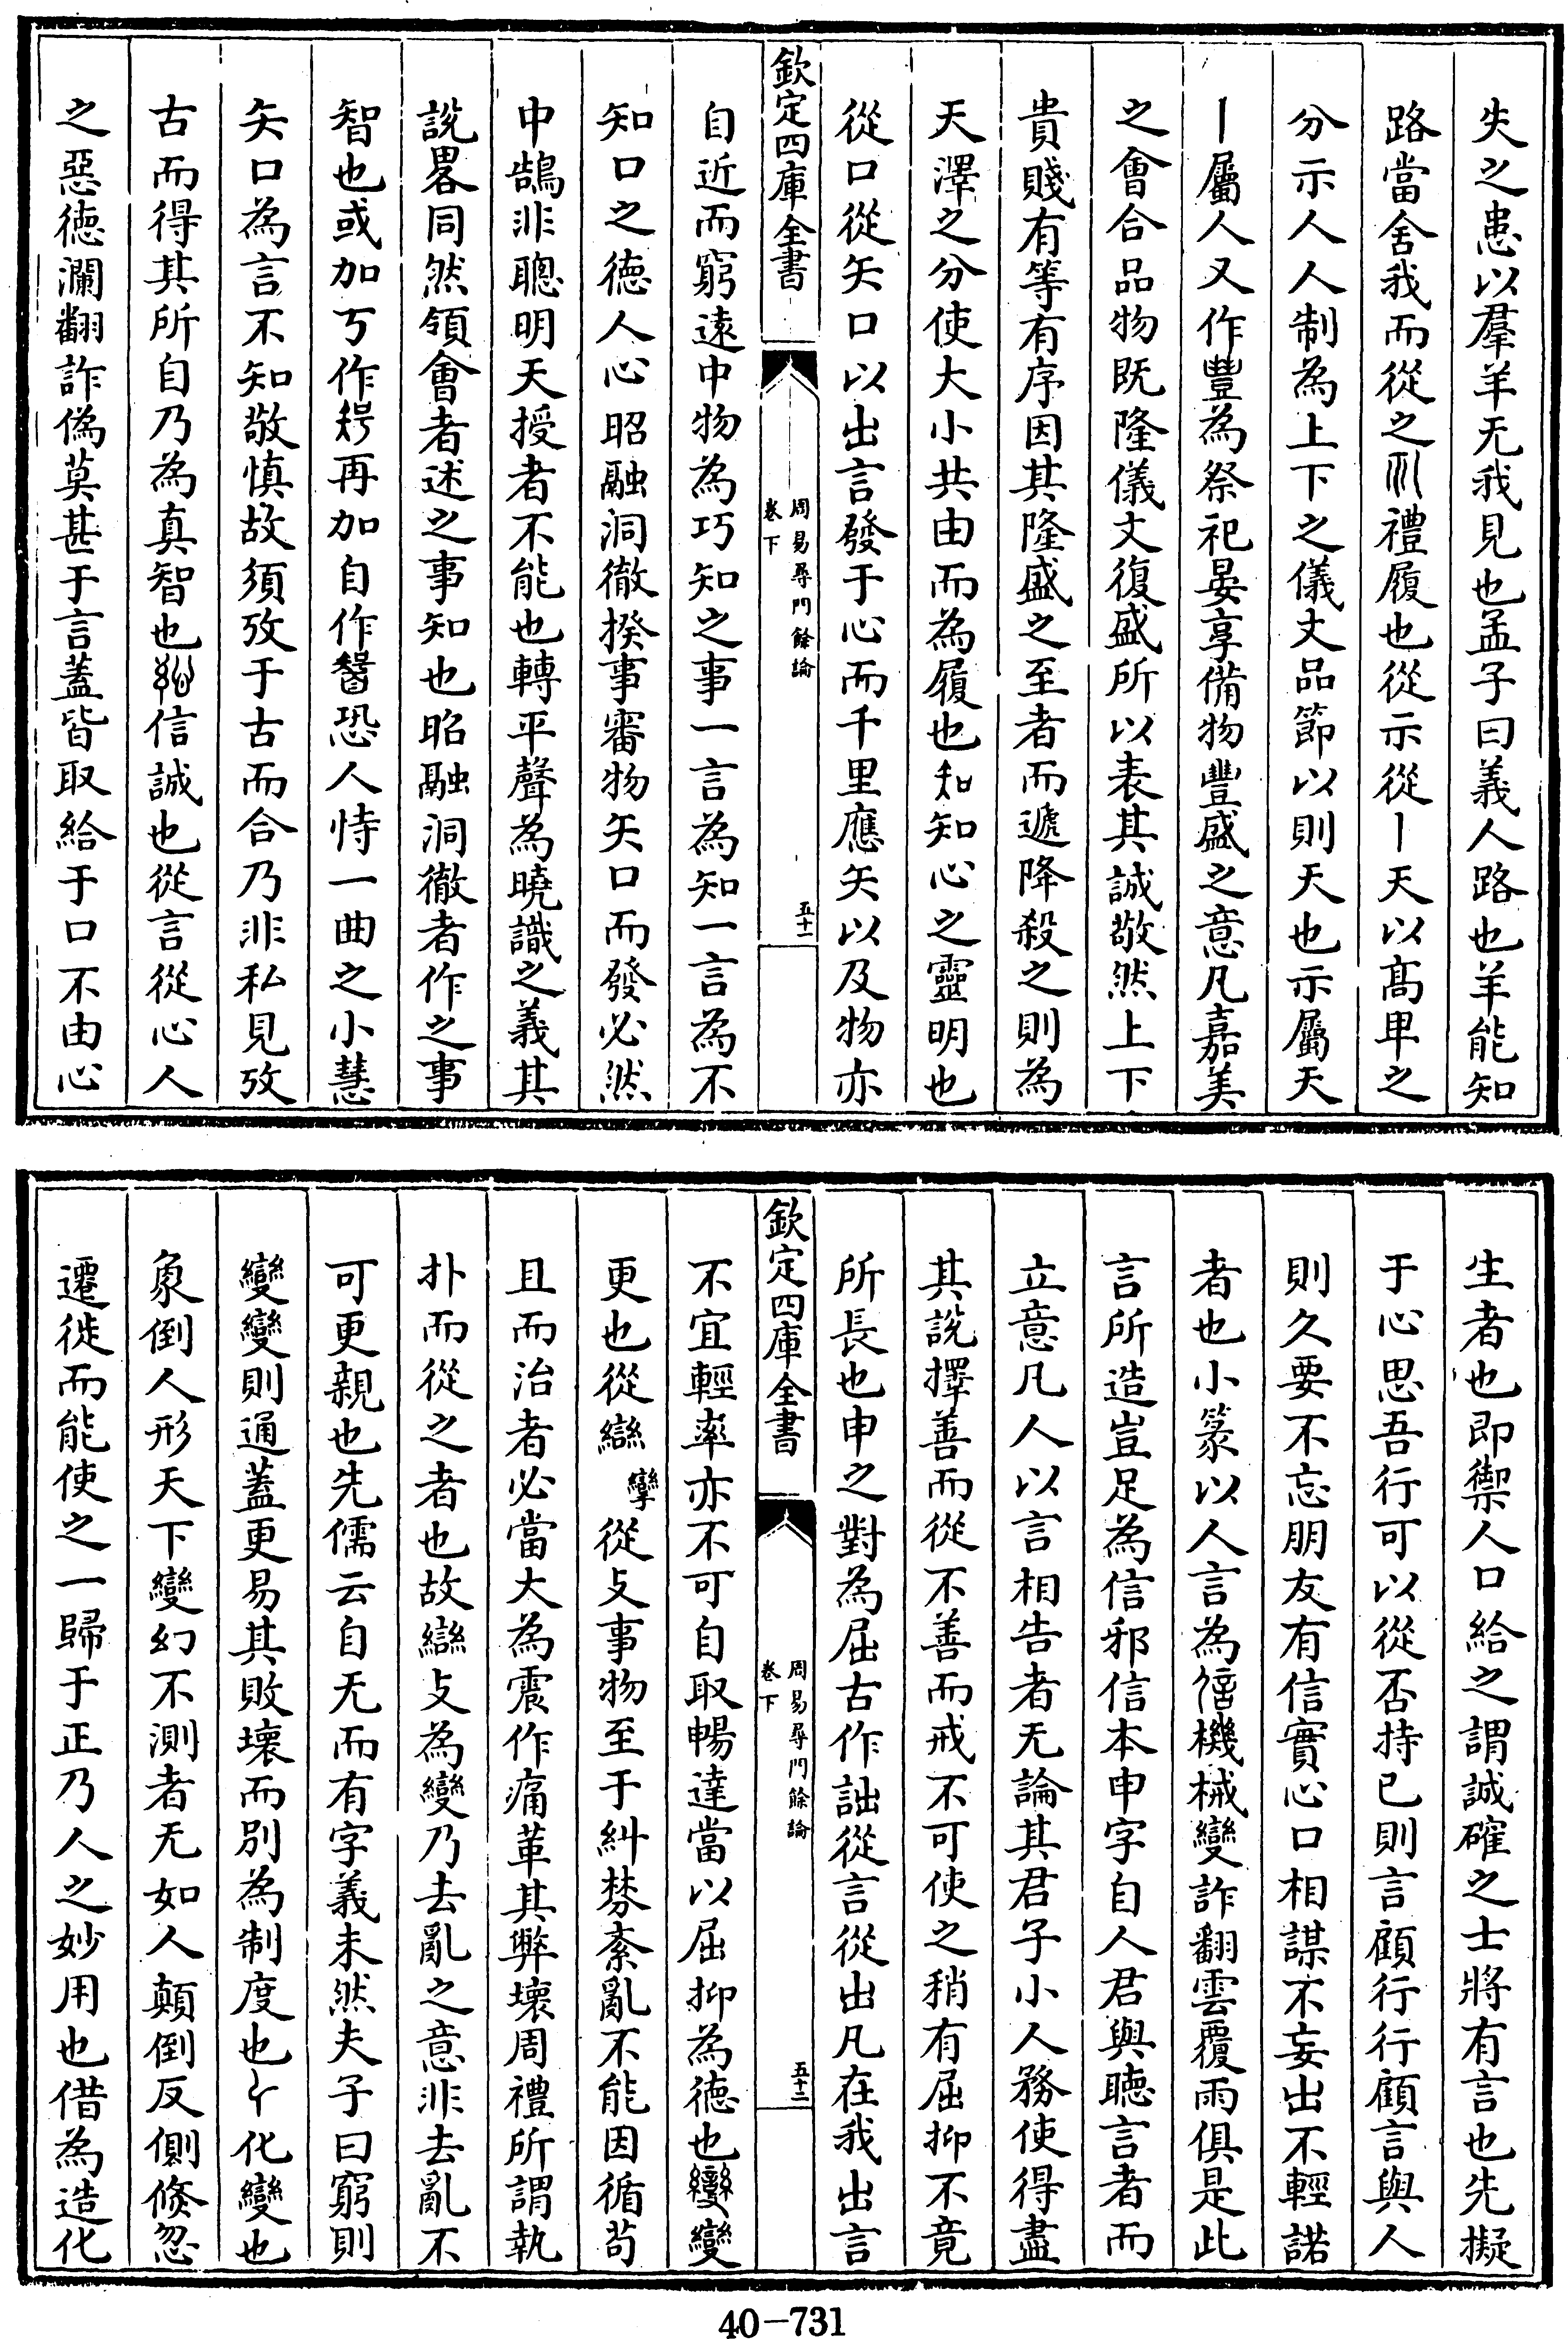 失之患以羣羊无我見也孟子曰義人路也羊能知
路當舍我而從之禮履也從示從丨天以髙卑之
分示人人制為上下之儀文品節以則天也示屬天
丨屬人又作豐為祭祀晏享備物豐盛之意凡嘉美
之會合品物既隆儀文復盛所以表其誠敬然上下
貴賤有等有序因其隆盛之至者而遞降殺之則為
天澤之分使大小共由而為履也知知心之靈明也
從口從矢口以出言發于心而千里應矢以及物亦
欽定四庫全書
周易尋門餘論
卷下
五十一
自近而窮遠中物為巧知之事一言為知一言為不
知口之徳人心昭融洞徹揆事審物矢口而發必然
中鵠非聰明天授者不能也轉平聲為曉識之義其
説畧同然領會者述之事知也昭融洞徹者作之事
智也或加丂作𥎿再加自作𥏼恐人恃一曲之小慧
矢口為言不知敬慎故須攷于古而合乃非私見攷
古而得其所自乃為真智也信誠也從言從心人
之惡徳瀾翻詐偽莫甚于言蓋皆取給于口不由心
生者也即禦人口給之謂誠確之士將有言也先擬
于心思吾行可以從否持已則言顧行行顧言與人
則久要不忘朋友有信實心口相謀不妄出不輕諾
者也小篆以人言為信機械變詐翻雲覆雨俱是此
言所造豈足為信邪信本申字自人君與聴言者而
立意凡人以言相告者无論其君子小人務使得盡
其説擇善而從不善而戒不可使之稍有屈抑不竟
所長也申之對為屈古作詘從言從出凡在我出言
欽定四庫全書
周易尋門餘論
卷下
五十二
不宜輕率亦不可自取暢達當以屈抑為徳也變
更也從䜌攣從攴事物至于糾棼紊亂不能因循苟
且而治者必當大為震作痛革其弊壞周禮所謂執
扑而從之者也故䜌攴為變乃去亂之意非去亂不
可更親也先儒云自无而有字義未然夫子曰窮則
變變則通蓋更易其敗壞而別為制度也𠤎化變也
象倒人形天下變幻不測者无如人顛倒反側倐忽
遷徙而能使之一歸于正乃人之妙用也借為造化
40-731